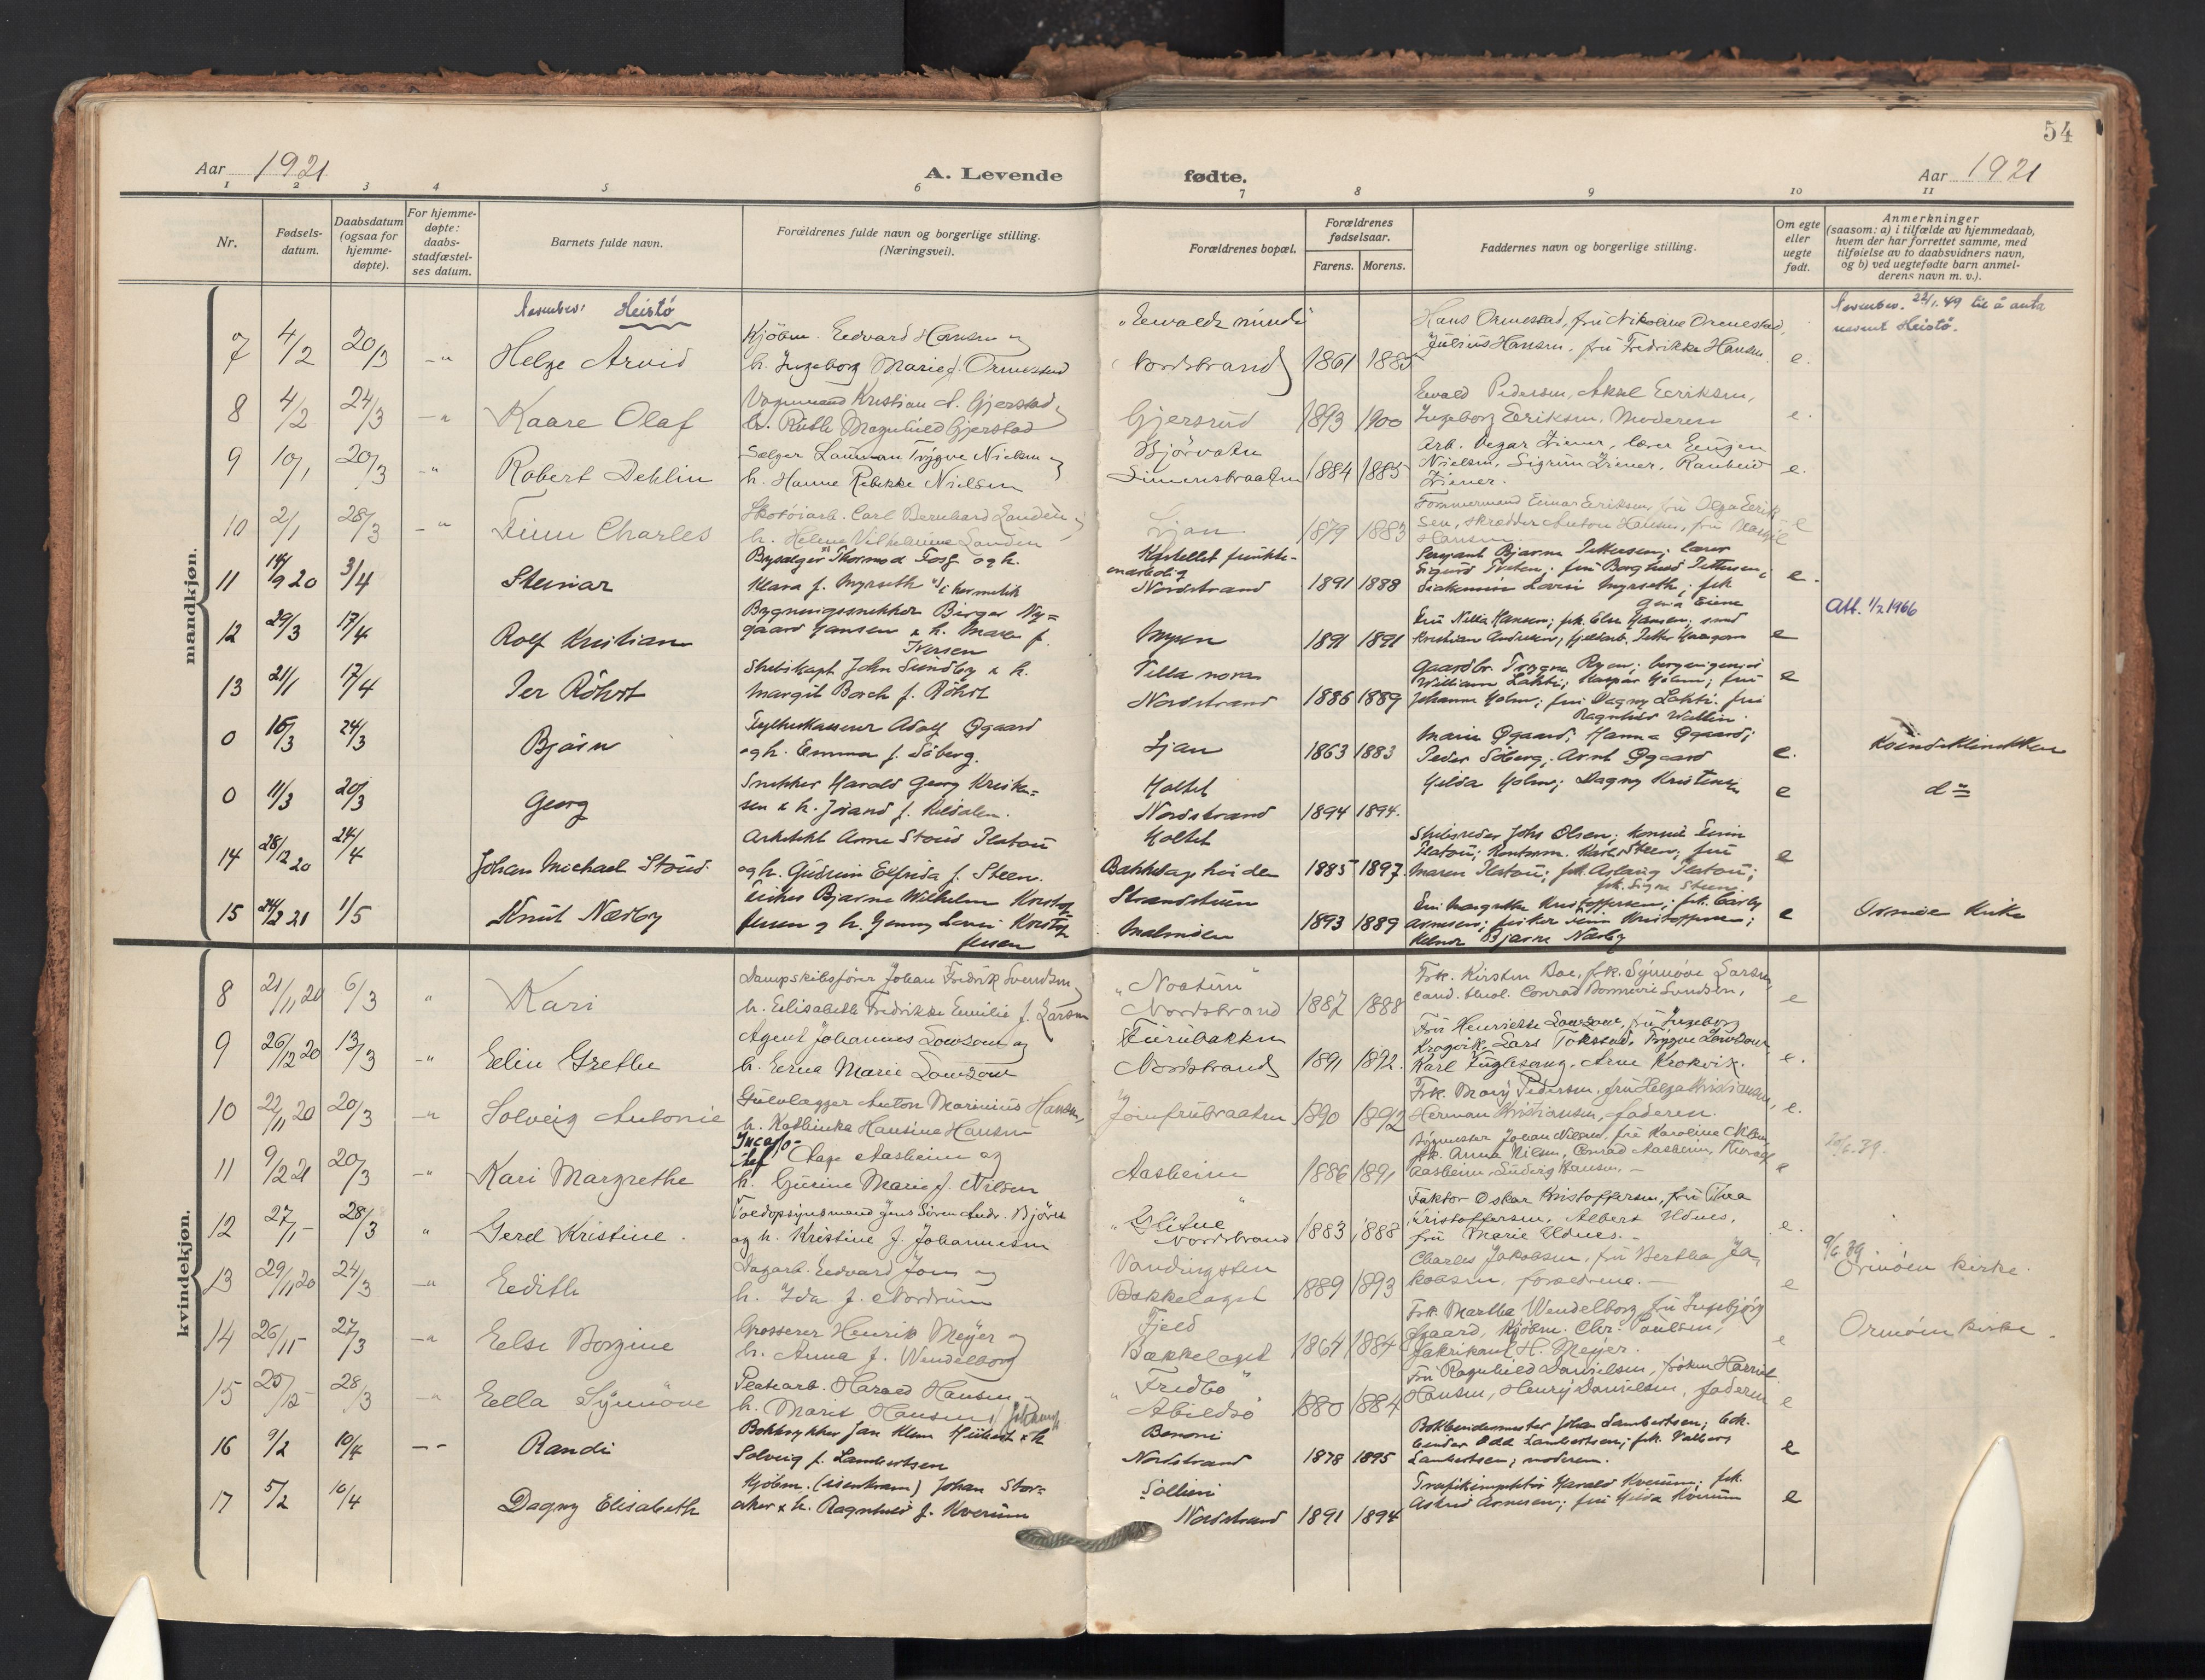 54
Aar 1921
A. Levende fødte.
Aar 1921
1 2 3 4 5 6 7 8 9 10 11
Nr.
Fødsels-
datum.
Daabsdatum
(ogsaa for
hjemme-
døpte).
For hjemme-
døpte:
daabs-
stadfæstel-
ses datum.
Barnets fulde navn.
Forældrenes fulde navn og borgerlige stilling.
(Næringsvei).
Forældrenes bopæl.
Forældrenes
fødselsaar.
Farens. Morens.
Faddernes navn og borgerlige stilling.
Om egte
eller
uegte
født.
Anmerkninger
(saasom: a) i tilfælde av hjemmedaab,
hvem der har forrettet samme, med
tilføielse av to daabsvidners navn,
og b) ved uegtefødte barn anmel-
derens navn m. v.).
mandkjøn.
Heistö
7 4/2 20/3 Helge Arvid
Kjöbm. Edvard Hansen og
h. Ingeborg Marie f. Ormestad
Nordstrand 1861 1885
Hans Ormestad, fru Nikoline Ormestad,
Julius Hansen, fru Fredrikke Hansen. e.
22/1.49 til å anta
navnet Heistö.
8 4/2 24/3 Kaare Olaf
Vognmand Kristian A. Gjerstad
h. Ruth Magnhild Gjerstad
Gjersrud 1893 1900
Ewald Pedersen, Aksel Eriksen,
Ingeborg Eriksen, Moderen e.
9 10/1 20/3 Robert Dehlin
Sælger Lauman Trygve Nielsen og
h. Hanna Rebekke Nielsen
Bjørvatn
Simensbraaten 1884 1885
Arb. Vegar Ziener, lærer Eugen
Nielsen, Sigrun Ziener, Ranheid
Ziener. e.
10 2/1 28/3 Finn Charles
Skotöiarb. Carl Bernhard Landén
h. Helene Vilhelmine Landén
Ljan 1879 1883
Formermand Einar Eriksen, fru Olga Erik
sen, skrædder Anton Hansen, fru
Hansen. e
11 14/9 20 3/4 Steinar
Klara f. Myrseth
Kastellet
Nordstrand 1891 1888
Sersjant Bjarne Pettersen; lærer
e.
12 29/3 17/4 Rolf Kristian
Bygningssnekker Birger Ny=
gaard Hansen & h. Maren f.
Iversen
1891 1891
e
Att. 1/2 1966
13 21/1 17/4 Per Röhrt
Skibskapt John Sundby & h.
Margit Borch f. Röhrt
Villa nova
Nordstrand 1886 1889
Gaardbr. Trygve Ryen;
William Lakti; Kaspar Holm; fru
Johanne Holm; fru Dagny Lakti. fru
Ragnhild Wallin. e
0 16/3 24/3 Bjørn
Adolf Øgaard
og h. Emma f. Söberg.
Ljan 1863 1883
Marie Øgaard; Hanna Øgaard;
Peder Söberg; Arnt Øgaard e.
Kvindeklinikken
0 11/3 20/3 Georg
Snekker Harald Georg Kristen=
sen & h. Jörand f. Kildalen.
Holtet
Nordstrand 1894 1894.
Hilda Holm; Dagny Kristensen e
do
14 28/12 20 24/4 Johan Michael Stoud.
Arkitekt Arne Stoud Platou
og h. Gudrun Elfrida f. Steen.
Holtet
Bækkelagshøiden 1885 1897.
Skibsreder Johs Olsen;
Platou; Kontorm. Karl Steen; fru
Maren Platou; frk. Aslaug Platou;
frk. Signe Steen. e
15 24/2 21 1/5 Knut Næsby
Fisker Bjarne Wilhelm Kristof=
fersen og h. Jenny Lovise Kristof=
fersen
Malmöen 1893 1889
Fru Margrethe Kristoffersen;
Bjarne Næsby e
Ormöe kirke
kvindekjøn.
8 21/11 20 6/3 Kari
Dampskibsförer Johan Fredrik Svendsen
h. Elisabeth Fredrikke Emilie f. Larsen
"Noatun"
Nordstrand 1887 1888
Frk. Kirsten Boe, frk. Synnöve Larsen,
cand. theol. Conrad Bonnevie Svendsen, e
9 26/12 20 13/3 Elin Grethe
Agent Johannes Lowzow og
h. Erna Marie Lowzow
Furubakken
Nordstrand 1891 1892.
Fru Henriette Lowzow, fru Ingeborg
Krogvik, Lars Tokstad, Trygve Lowzow,
Karl Fuglesang, Arne Krokvik. e.
10 22/11 20 20/3 Solveig Antonie
Gulvlægger Anton Marinius Hansen,
h. Kathinka Hansine Hansen
Jomfrubraaten 1890 1892
Frk. Mary Pedersen, fru Helga Kristiansen,
Herman Kristiansen, faderen. e.
11 9/2 21 20/3 Kari Margrethe
Incasso-
chef Aage Aasheim og
h. Gurine Marie f. Nilsen
Aasheim 1886 1891
Bygmester Johan Nilsen, fru Karoline Nilsen,
frk. Anna Nilsen, Conrad Aasheim,
Aasheim, Ludvig Hansen. e
20/6.39.
12 27/1 28/3 Gerd Kristine.
Toldopsynsmand Jens Sören Andr. Björn
og h. Kristine f. Johannesen
Nordstrand 1883 1888
Faktor Oskar Kristoffersen, fru Thea
Kristoffersen, Albert Udnes,
fru Marie Udnes. e.
13 29/11 20 24/3 Edith
Dagarb. Edvard Jons og
h. Ida f. Nordrum
Vandingsten
Bækkelaget 1889 1893
Charles Jakobsen, fru Bertha Ja-
kobsen, forældrene. e
9/6 39
Ormöen kirke.
14 26/11 27/3 Else Borgine
Grosserer Henrik Meyer og
h. Anna f. Wendelborg
Fjeld
Bækkelaget 1864 1884
Frk. Martha Wendelborg, fru Ingebjörg
Kjöbm. Chr. Paulsen,
fabrikant H. Meyer. e
Ormöen kirke.
15 28/3 Ella Synnöve
Platearb. Harald Hansen
h. Marit Hansen
"Fredbo"
Abildsö 1880 1884
Fru Ragnhild Danielsen, fröken Harriet
Hansen, Henry Danielsen, faderen e
16 9/2 10/4 Randi
Boktrykker Jan Klem & h
Solveig f. Lambertsen
Benoni
Nordstrand 1878 1895
Bokbindermester Johan Lambertsen; bok-
binder Odd Lambertsen; frk. Valborg
Lambertsen; moderen. e
17 5/2 10/4 Dagny Elisabeth
Kjöbm. (isenkram) Johan Stor=
aker & h. Ragnhild f. Kverum
Sollien
Nordstrand 1891 1894
Trafikinspektör Harald Kverum; frk.
Astrid Arnesen; fru Hilda Kverum e